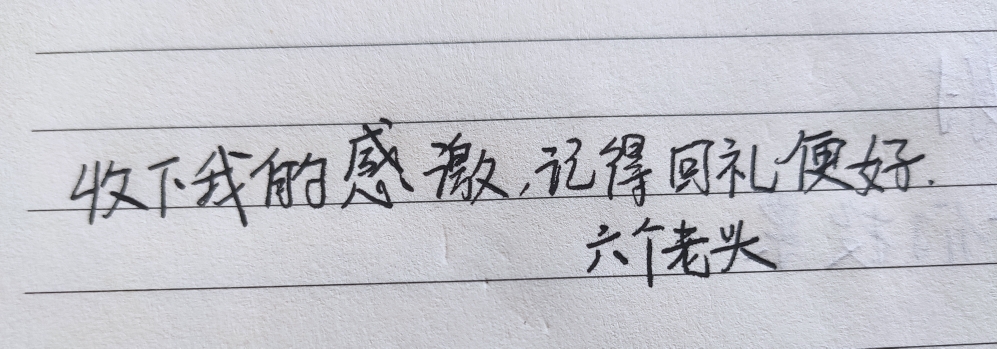 收下我的感激,记得回礼便好.
六个老头